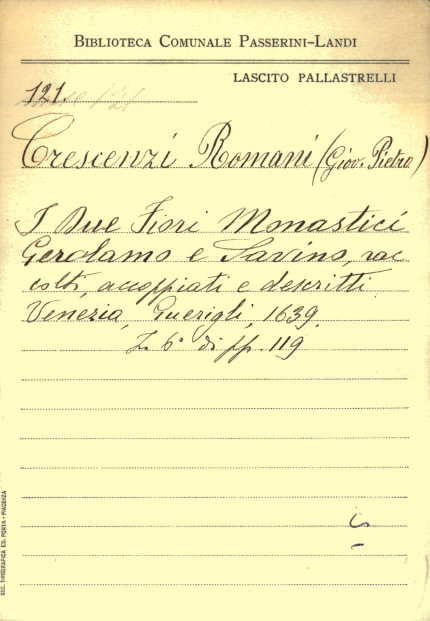 BIBLIOTECA COMUNALE PASSERINI-LANDI
LASCITO PALLASTRELLI
121.
Crescenzi Romani (Giov. Pietro)
I Due Fiori Monastici
Gerolamo e Savino, rac
colti, accoppiati e descritti
Venezia, Guerigli, 1639.
di pp. 119
SOC. TIPOGRAFICA ED. PORTA - PIACENZA